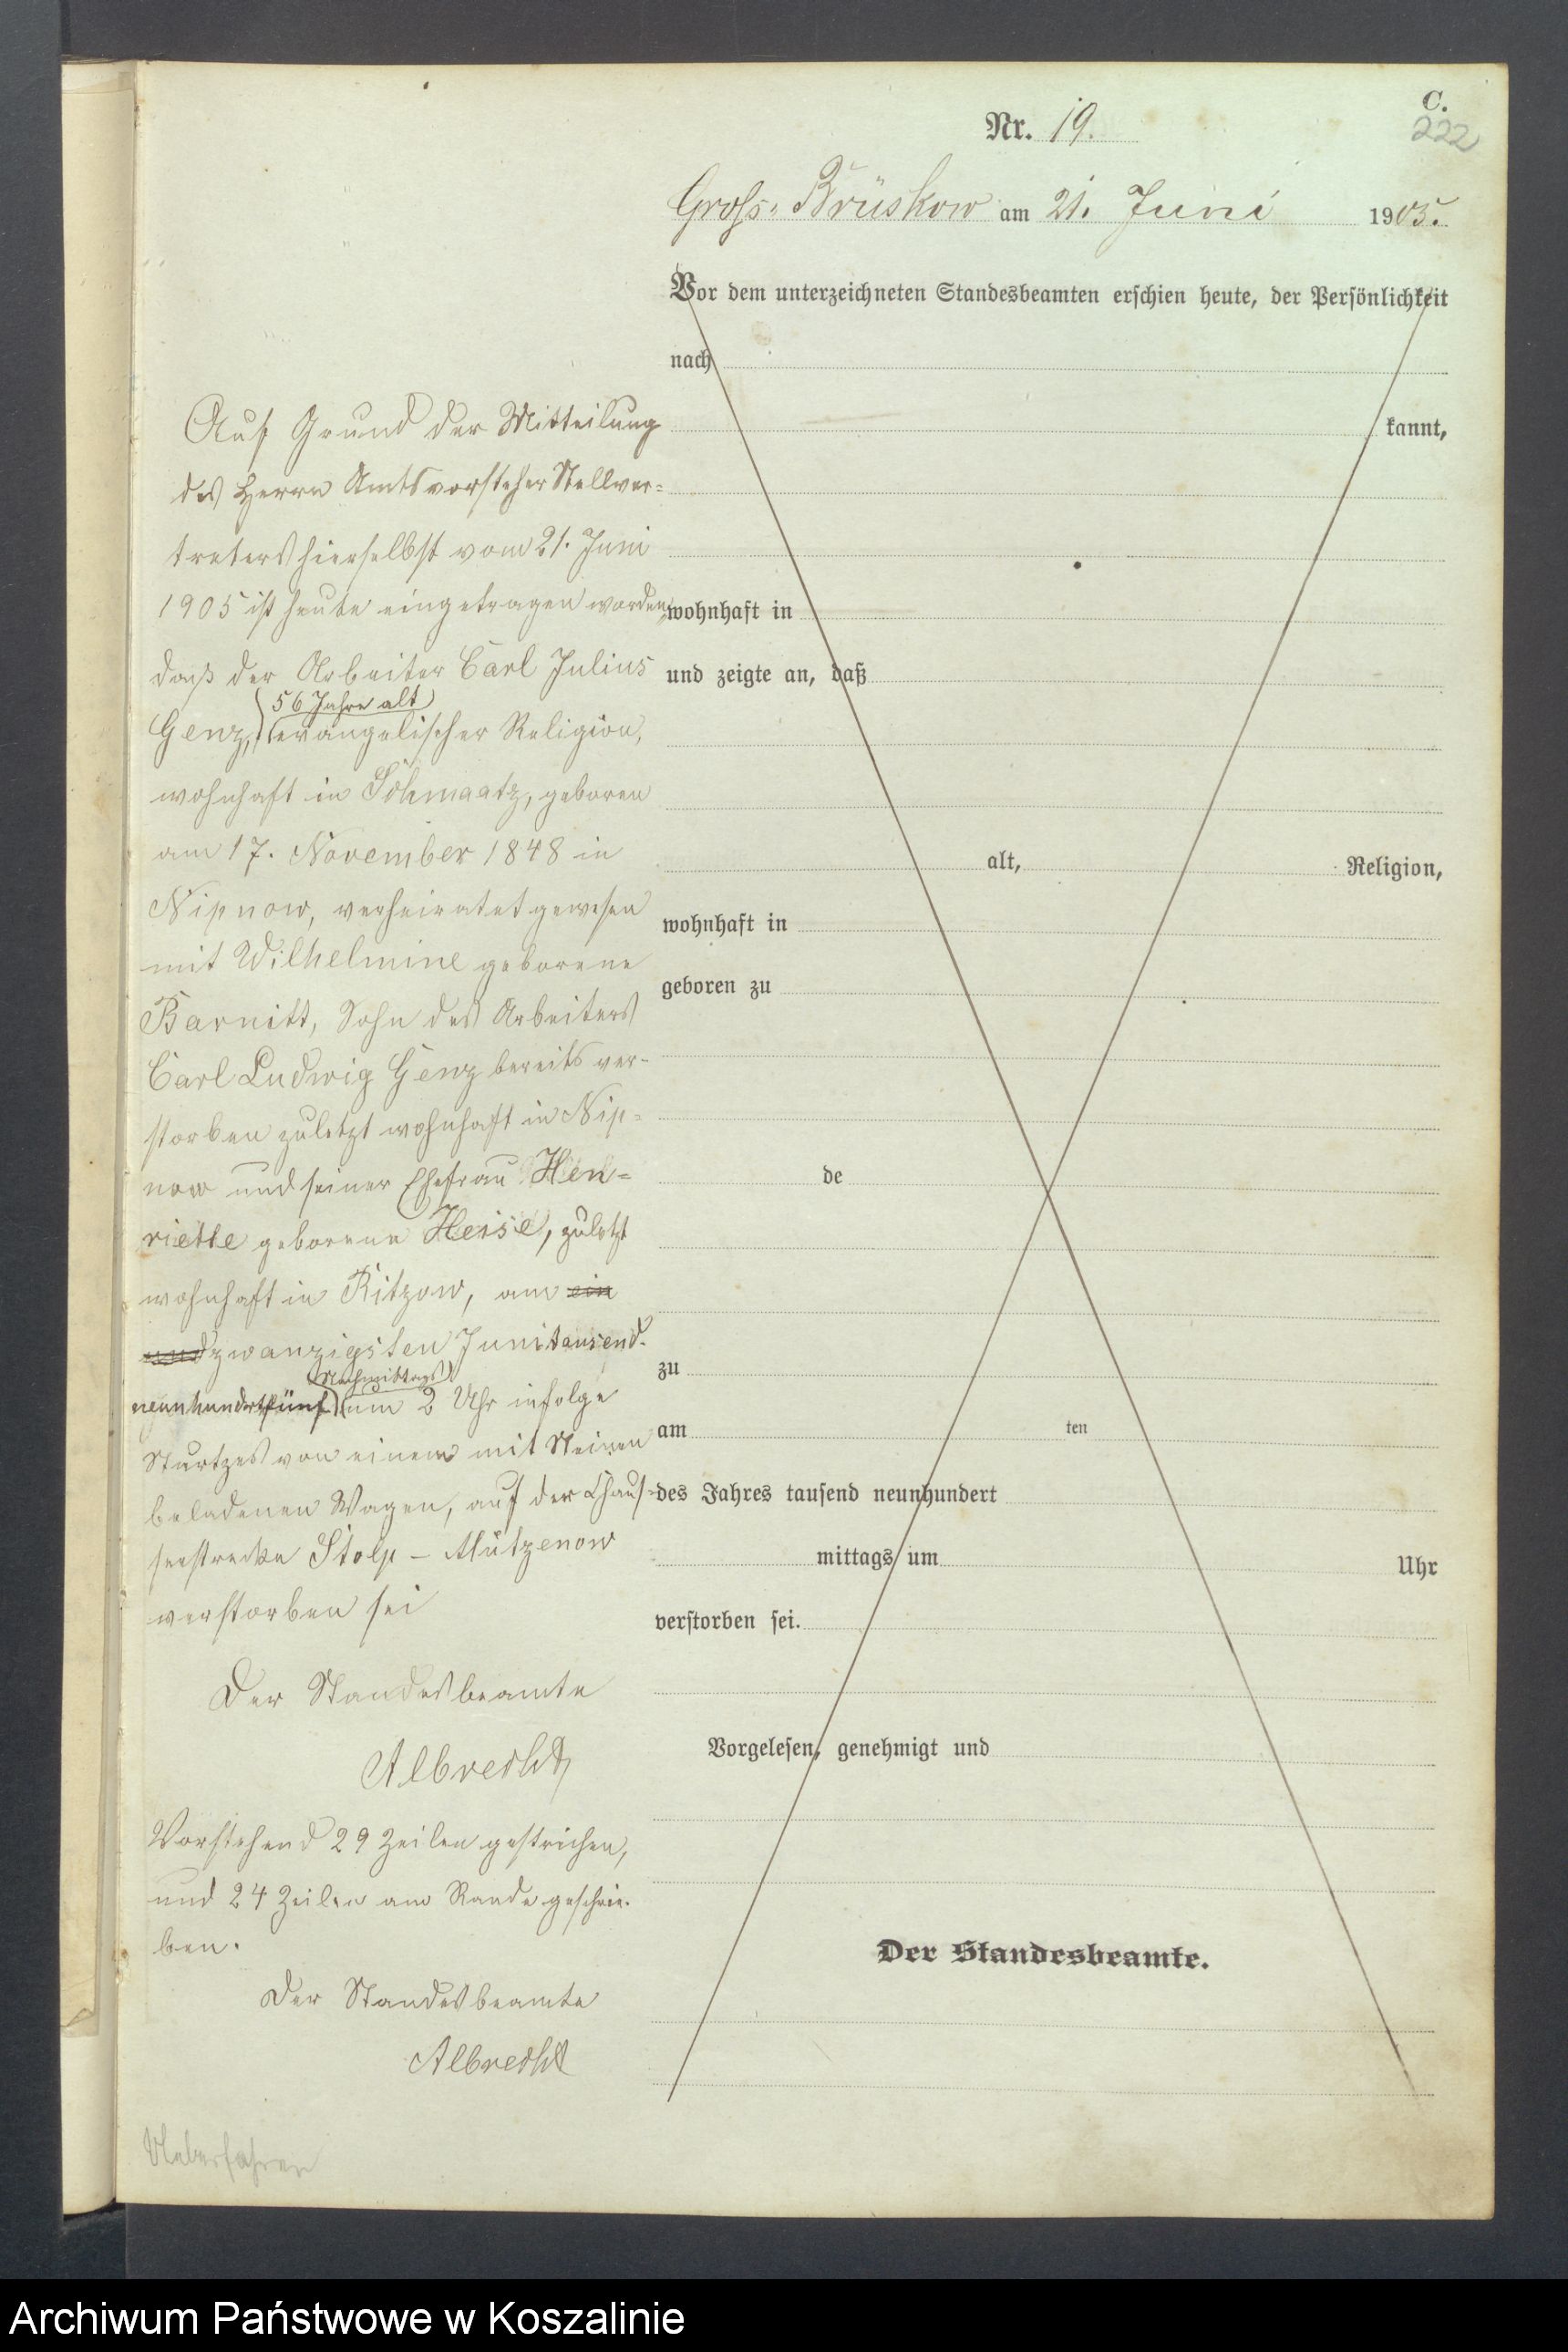 C.
222
Nr. 19.
Gross-Brüskow am 21. Juni 1905.
Vor dem unterzeichneten Standesbeamten erschien heute, der Persönlichkeit
nach
kannt,
wohnhaft in
und zeigte an, daß
alt, Religion,
wohnhaft in
geboren zu
de
zu
am ten
des Jahres tausend neunhundert
mittags um Uhr
verstorben sei.
Vorgelesen, genehmigt und
Der Standesbeamte.
Auf Grund der Mitteilung
des Herrn Amtsvorsteher Stellver-
treters hierselbst vom 21. Juni
1905 ist heute eingetragen worden,
daß der Arbeiter Carl Julius
56 Jahre alt
Genz, evangelischer Religion,
wohnhaft in Schmaatz, geboren
am 17. November 1848 in
Nipnow, verheiratet gewesen
mit Wilhelmine geborene
Barnitt, Sohn des Arbeiters
Carl Ludwig Genz bereits ver-
storben zuletzt wohnhaft in Nip-
now und seiner Ehefrau Hen-
riette geborene Heise, zuletzt
wohnhaft in Ritzow, am ein
und zwanzigsten Juni tausend
Nachmittags
neunhundertfünf um 2 Uhr infolge
Sturtzes von einem mit Steinen
beladenen Wagen, auf der Chaus-
seestrecke Stolp - Mützenow
verstorben sei
Der Standesbeamte
Albrecht
Vorstehend 29 Zeilen gestrichen,
und 24 Zeilen am Rande geschrie-
ben.
Der Standesbeamte
Albrecht
Ueberfahren
Archiwum Państwowe w Koszalinie